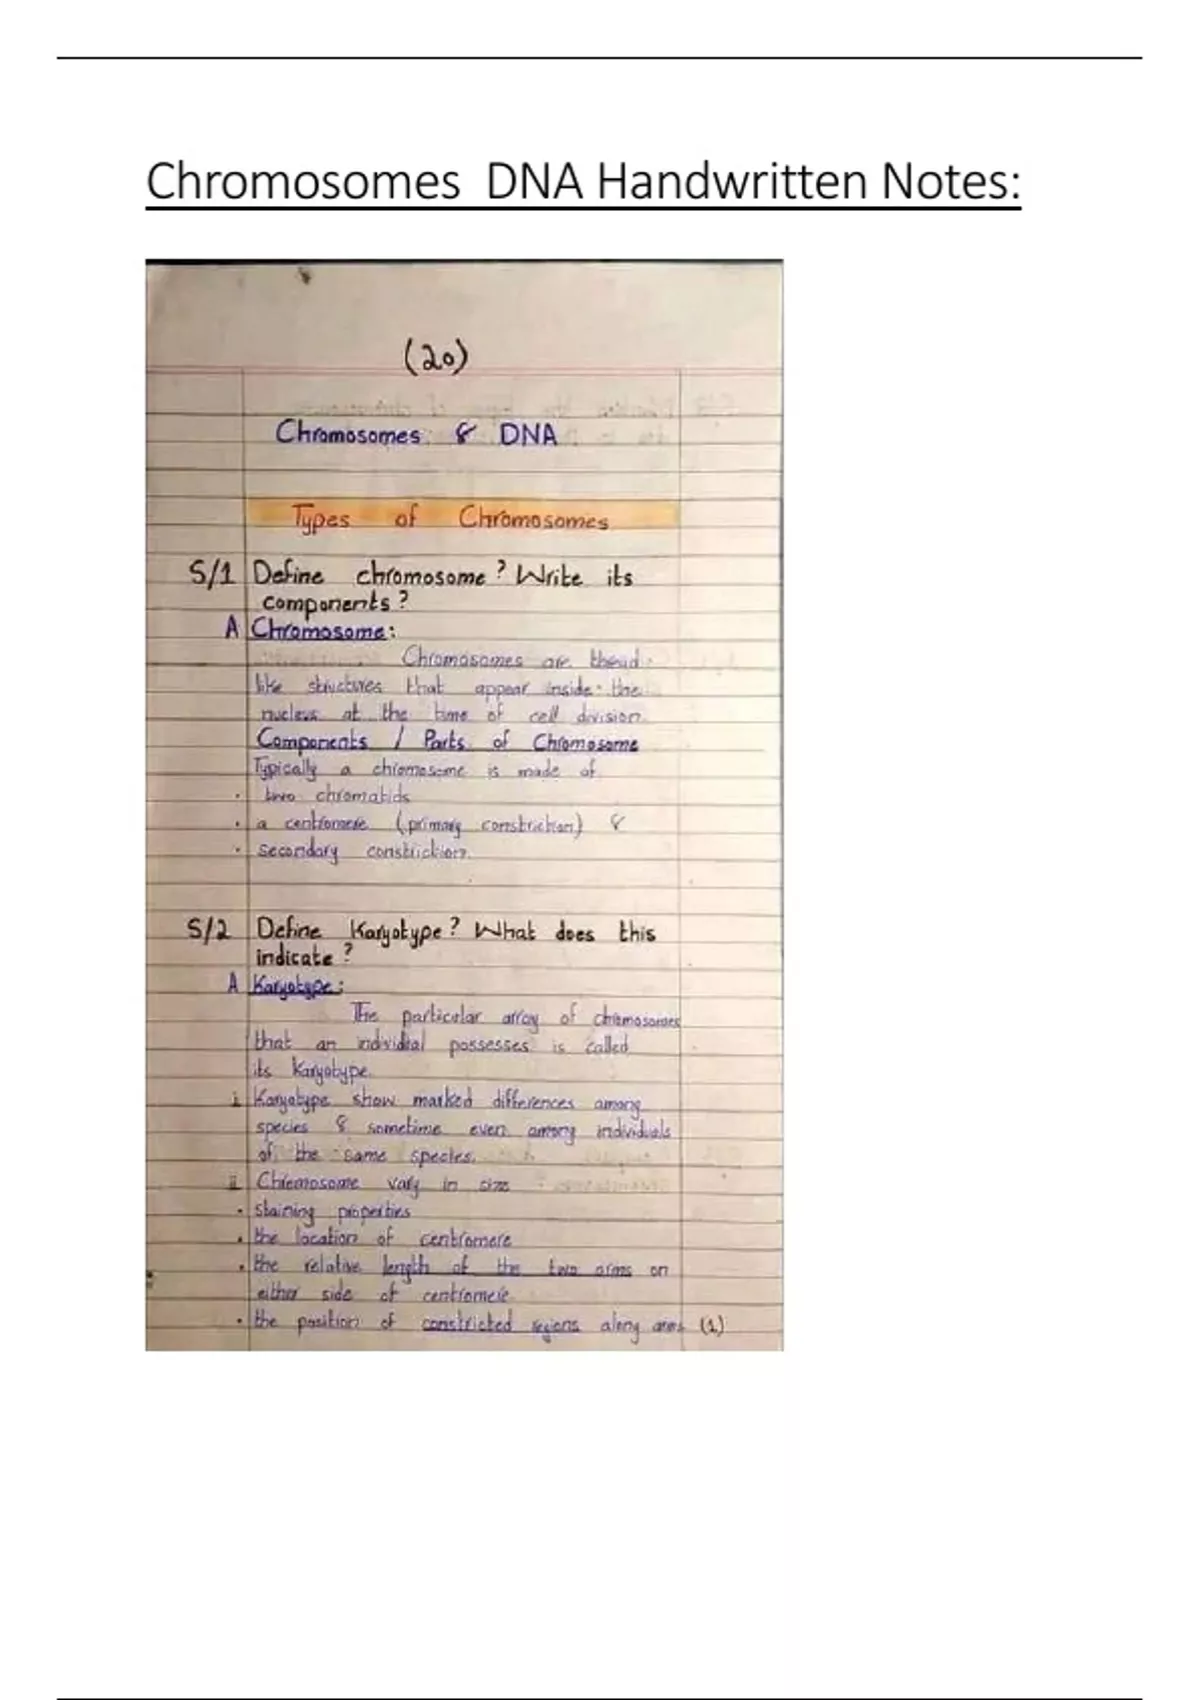 Chromosomes DNA Handwritten Notes:
(20)
Chromosomes & DNA
Types of Chromosomes
S/1 Define chromosome? Write its
components?
A Chromosome:
Chromosomes are thread
like structures that appear inside the
nucleus at the time of cell division.
Components / Parts of Chromosome
Typically a chromosome is made of
• two chromatids
• a centromere (primary constriction) &
• secondary constriction.
S/2 Define Karyotype? What does this
indicate?
A Karyotype:
The particular array of chromosomes
that an individual possesses is called
its Karyotype.
i Karyotype show marked differences among
species & sometime even among individuals
of the same species.
ii Chromosome vary in size
• staining properties
• the location of centromere
• the relative length of the two arms on
either side of centromere
• the position of constricted regions along arms (1)